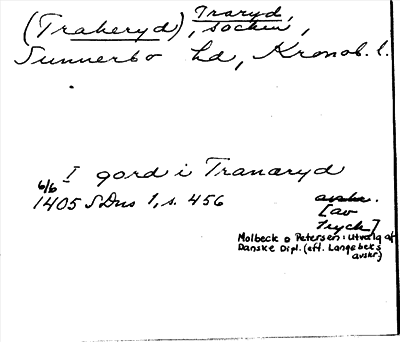 Traryd,
(Traheryd), socken,
Sunnerbo hd, Kronob. l.
I gord i Tranaryd
6/6
1405 SDns 1, s. 456
avskr.
[av
tryck]
Molbeck o Petersen: Utvalg af
Danske Dipl. (efl. Langebeks
avskr)